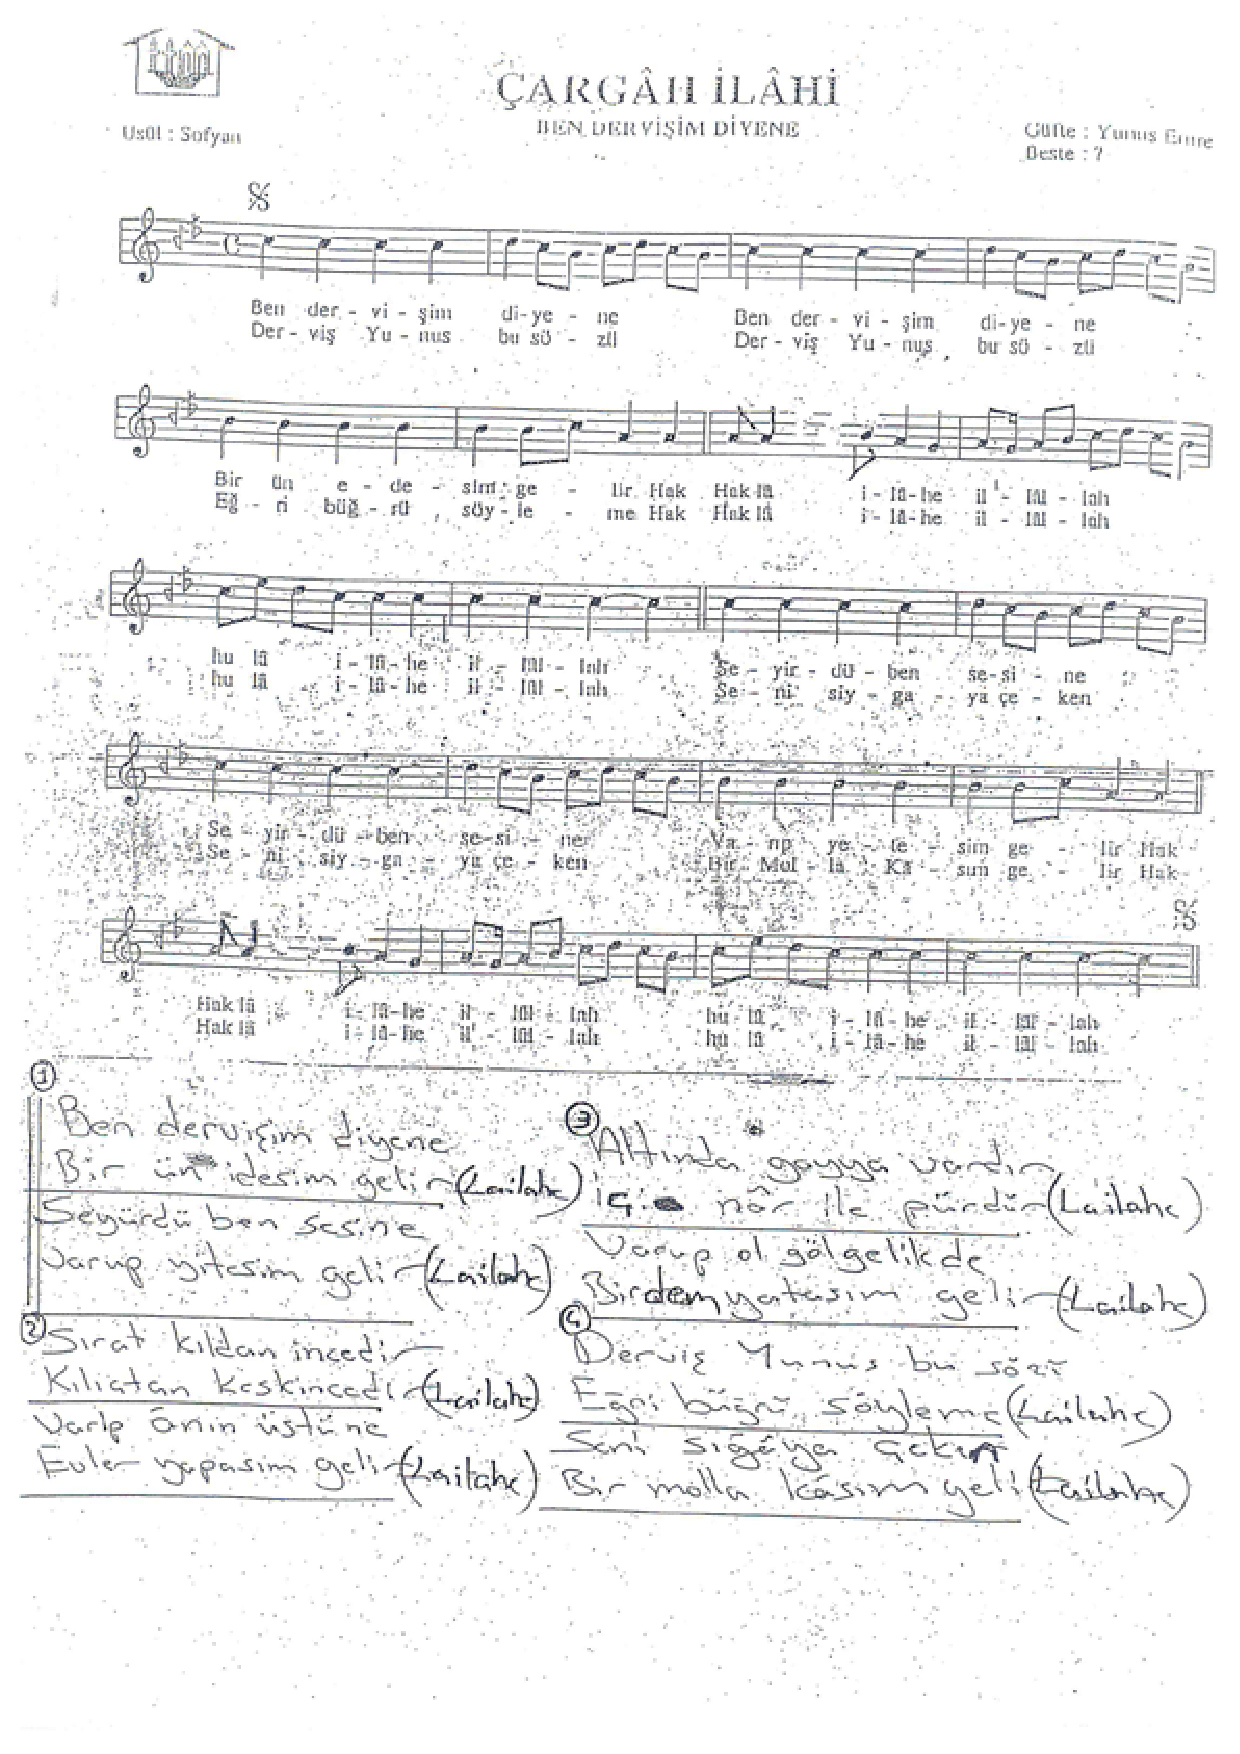 ÇARGÂH İLÂHİ
BEN DERVİŞİM DİYENE
Usûl : Sofyan
Güfte : Yunus Emre
Beste : ?
Ben der - vi - şim di - ye - ne Ben der - vi - şim di - ye - ne
Der - viş Yu - nus bu sö - zü Der - viş Yu - nus bu sö - zü
Bir ün e - de - sim ge - lir Hak Hak lâ i - lâ - he il - lâl - lah
Eğ - ri büğ - rü söy - le - me Hak Hak lâ i - lâ - he il - lâl - lah
hu lâ i - lâ - he il - lâl - lah Se - yir - dü - ben se - si - ne
hu lâ i - lâ - he il - lâl - lah Se - ni siy - ga - ya çe - ken
Se - yir - dü - ben se - si - ne Va - rıp ye - te - sim ge - lir Hak
Se - ni siy - ga - ya çe - ken Bir Mol - lâ Ka - sım ge - lir Hak
Hak lâ i - lâ - he il - lâl - lah hu lâ i - lâ - he il - lâl - lah
Hak lâ i - lâ - he il - lâl - lah hu lâ i - lâ - he il - lâl - lah
1
Ben dervişim diyene
Bir ün idesim gelir (Lailahe)
Seyürdü ben sesine
Varup yitesim gelir (Lailahe)
2
Sırat kıldan incedir
Kılıçtan keskincedir (Lailahe)
Varıp ânın üstüne
Evler yapasım gelir (Lailahe)
3
Altında gayya vardır
içi nâr ile pürdür (Lailahe)
Varup ol gölgelikde
Birdem yatasım gelir (Lailahe)
4
Derviş Yunus bu sözü
Eğri büğrü söyleme (Lailahe)
Seni sığaya çeken
Bir molla kâsım gelir (Lailahe)